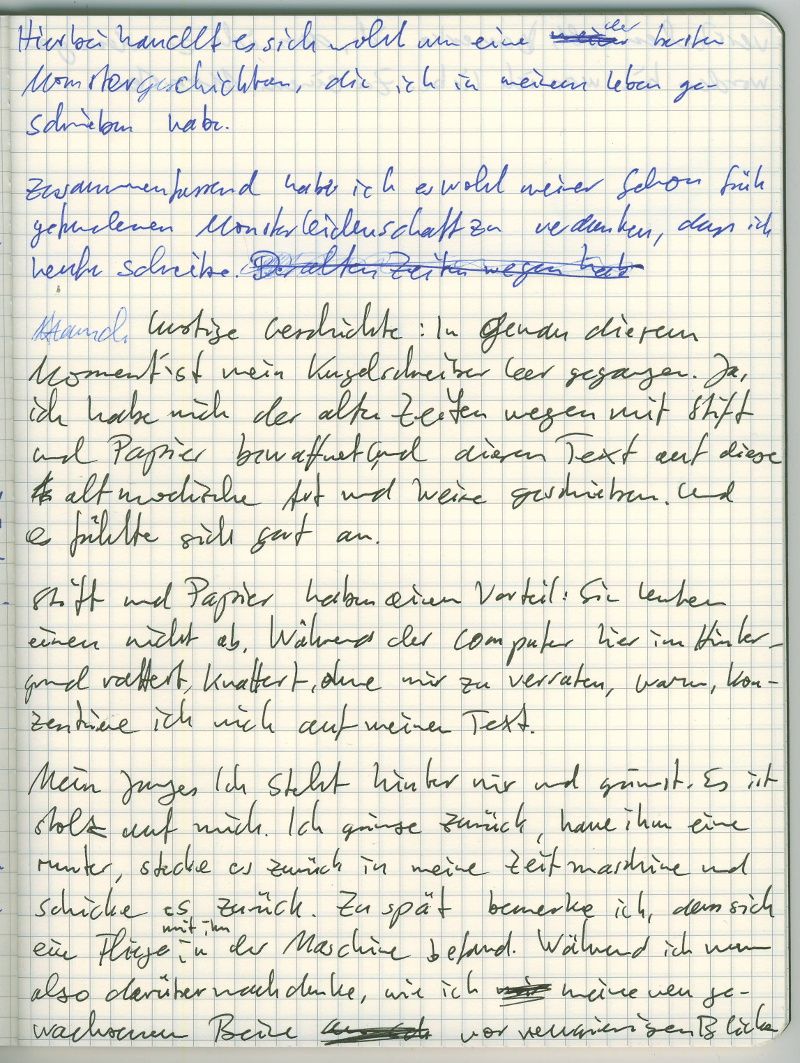 Hierbei handelt es sich wohl um eine der besten
Monstergeschichten, die ich in meinem Leben ge-
schrieben habe.
Zusammenfassend habe ich es wohl meiner schon früh
gefundenen Monsterleidenschaft zu verdanken, dass ich
heute schreibe. Der alten Zeiten wegen hab
lustige Geschichte: In genau diesem
Moment ist mein Kugelschreiber leer gegangen. Ja,
ich habe mich der alten Zeiten wegen mit Stift
und Papier bewaffnet und diesen Text auf diese
altmodische Art und Weise geschrieben. Und
es fühlte sich gut an.
Stift und Papier haben einen Vorteil: Sie lenken
einen nicht ab. Während der Computer hier im Hinter-
grund rattert, knattert, ohne mir zu verraten, warum, kon-
zentriere ich mich auf meinen Text.
Mein junges Ich steht hinter mir und grinst. Es ist
stolz auf mich. Ich grinse zurück, haue ihm eine
runter, stecke es zurück in meine Zeitmaschine und
schicke es zurück. Zu spät bemerke ich, dass sich
mit ihm
eine Fliege in der Maschine befand. Während ich nun
also darüber nachdenke, wie ich meine neu ge-
wachsenen Beine vor neugierigen Blicken